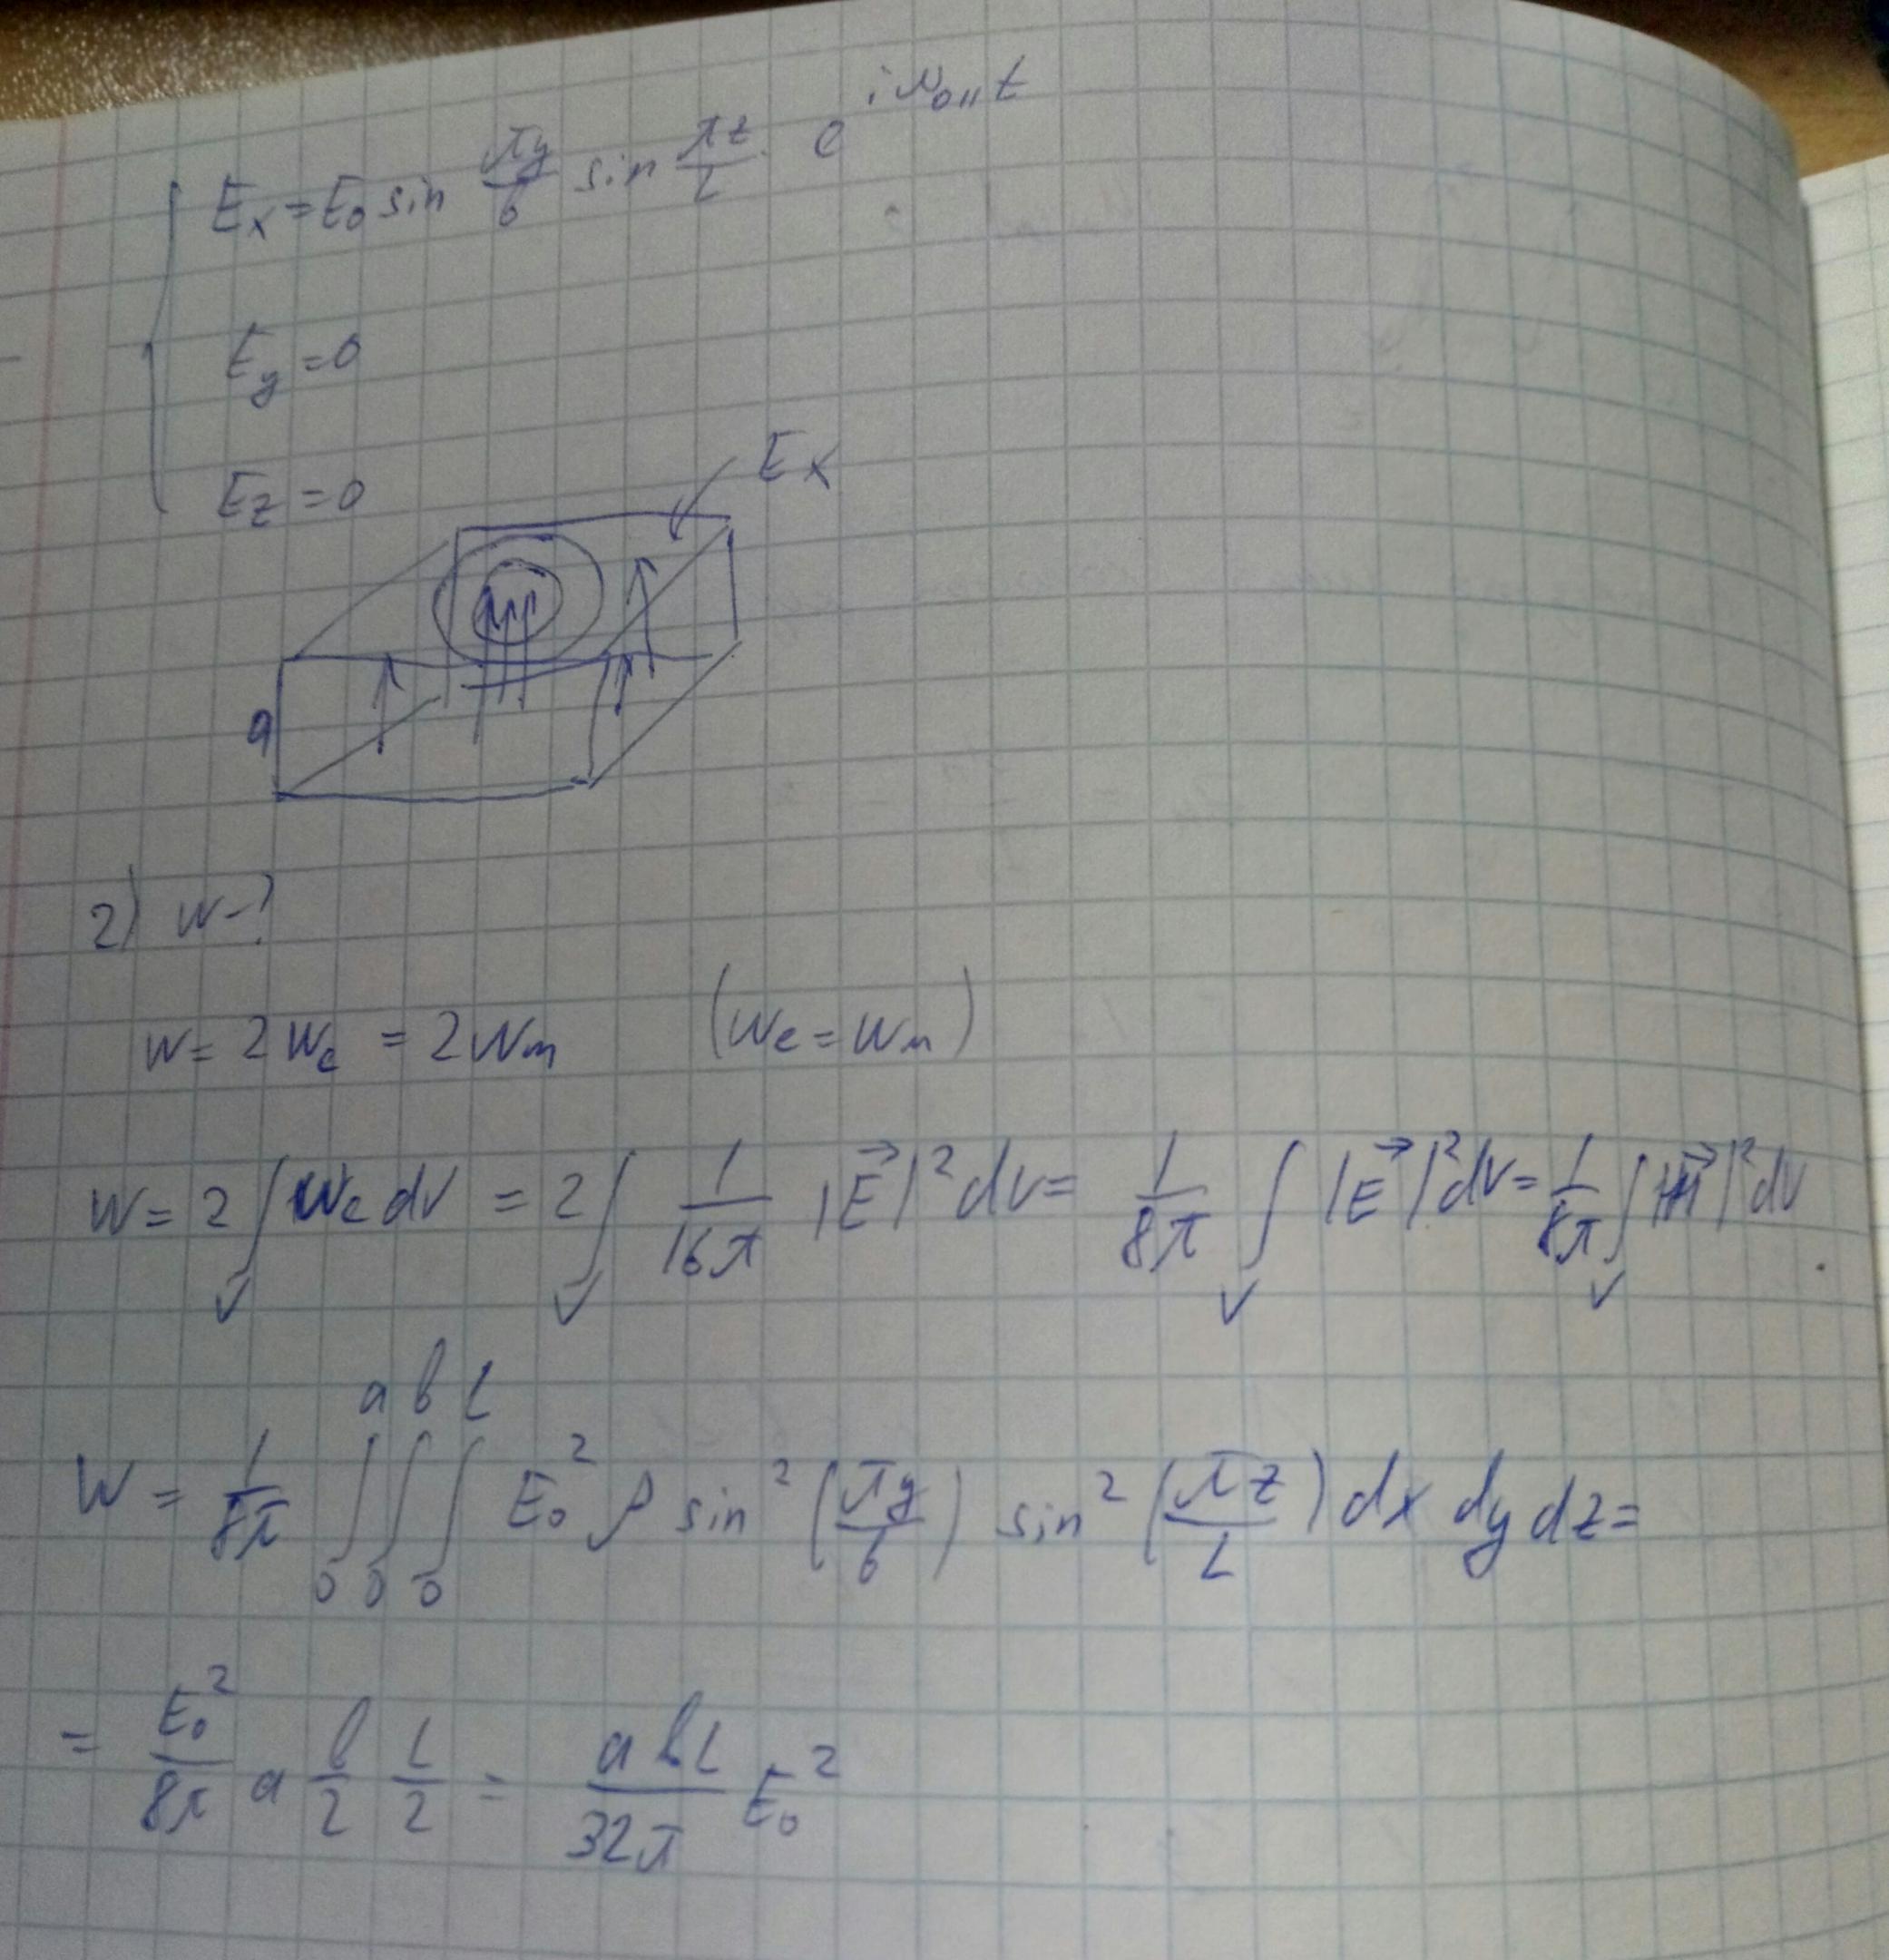 Eₓ = E₀ sin πy/b sin πz/L · e^{iω₀₁₁t}
E_y = 0
E_z = 0
Eₓ
a
2) W - ?
W = 2Wₑ = 2Wₘ (Wₑ = Wₘ)
W = 2∫_V wₑ dV = 2∫_V 1/16π |E⃗|² dV = 1/8π ∫_V |E⃗|² dV = 1/8π ∫_V |H⃗|² dV
W = 1/8π ∫₀^a ∫₀^b ∫₀^L E₀² sin² (πy/b) sin² (πz/L) dx dy dz =
= E₀²/8π a b/2 L/2 = abL/32π E₀²